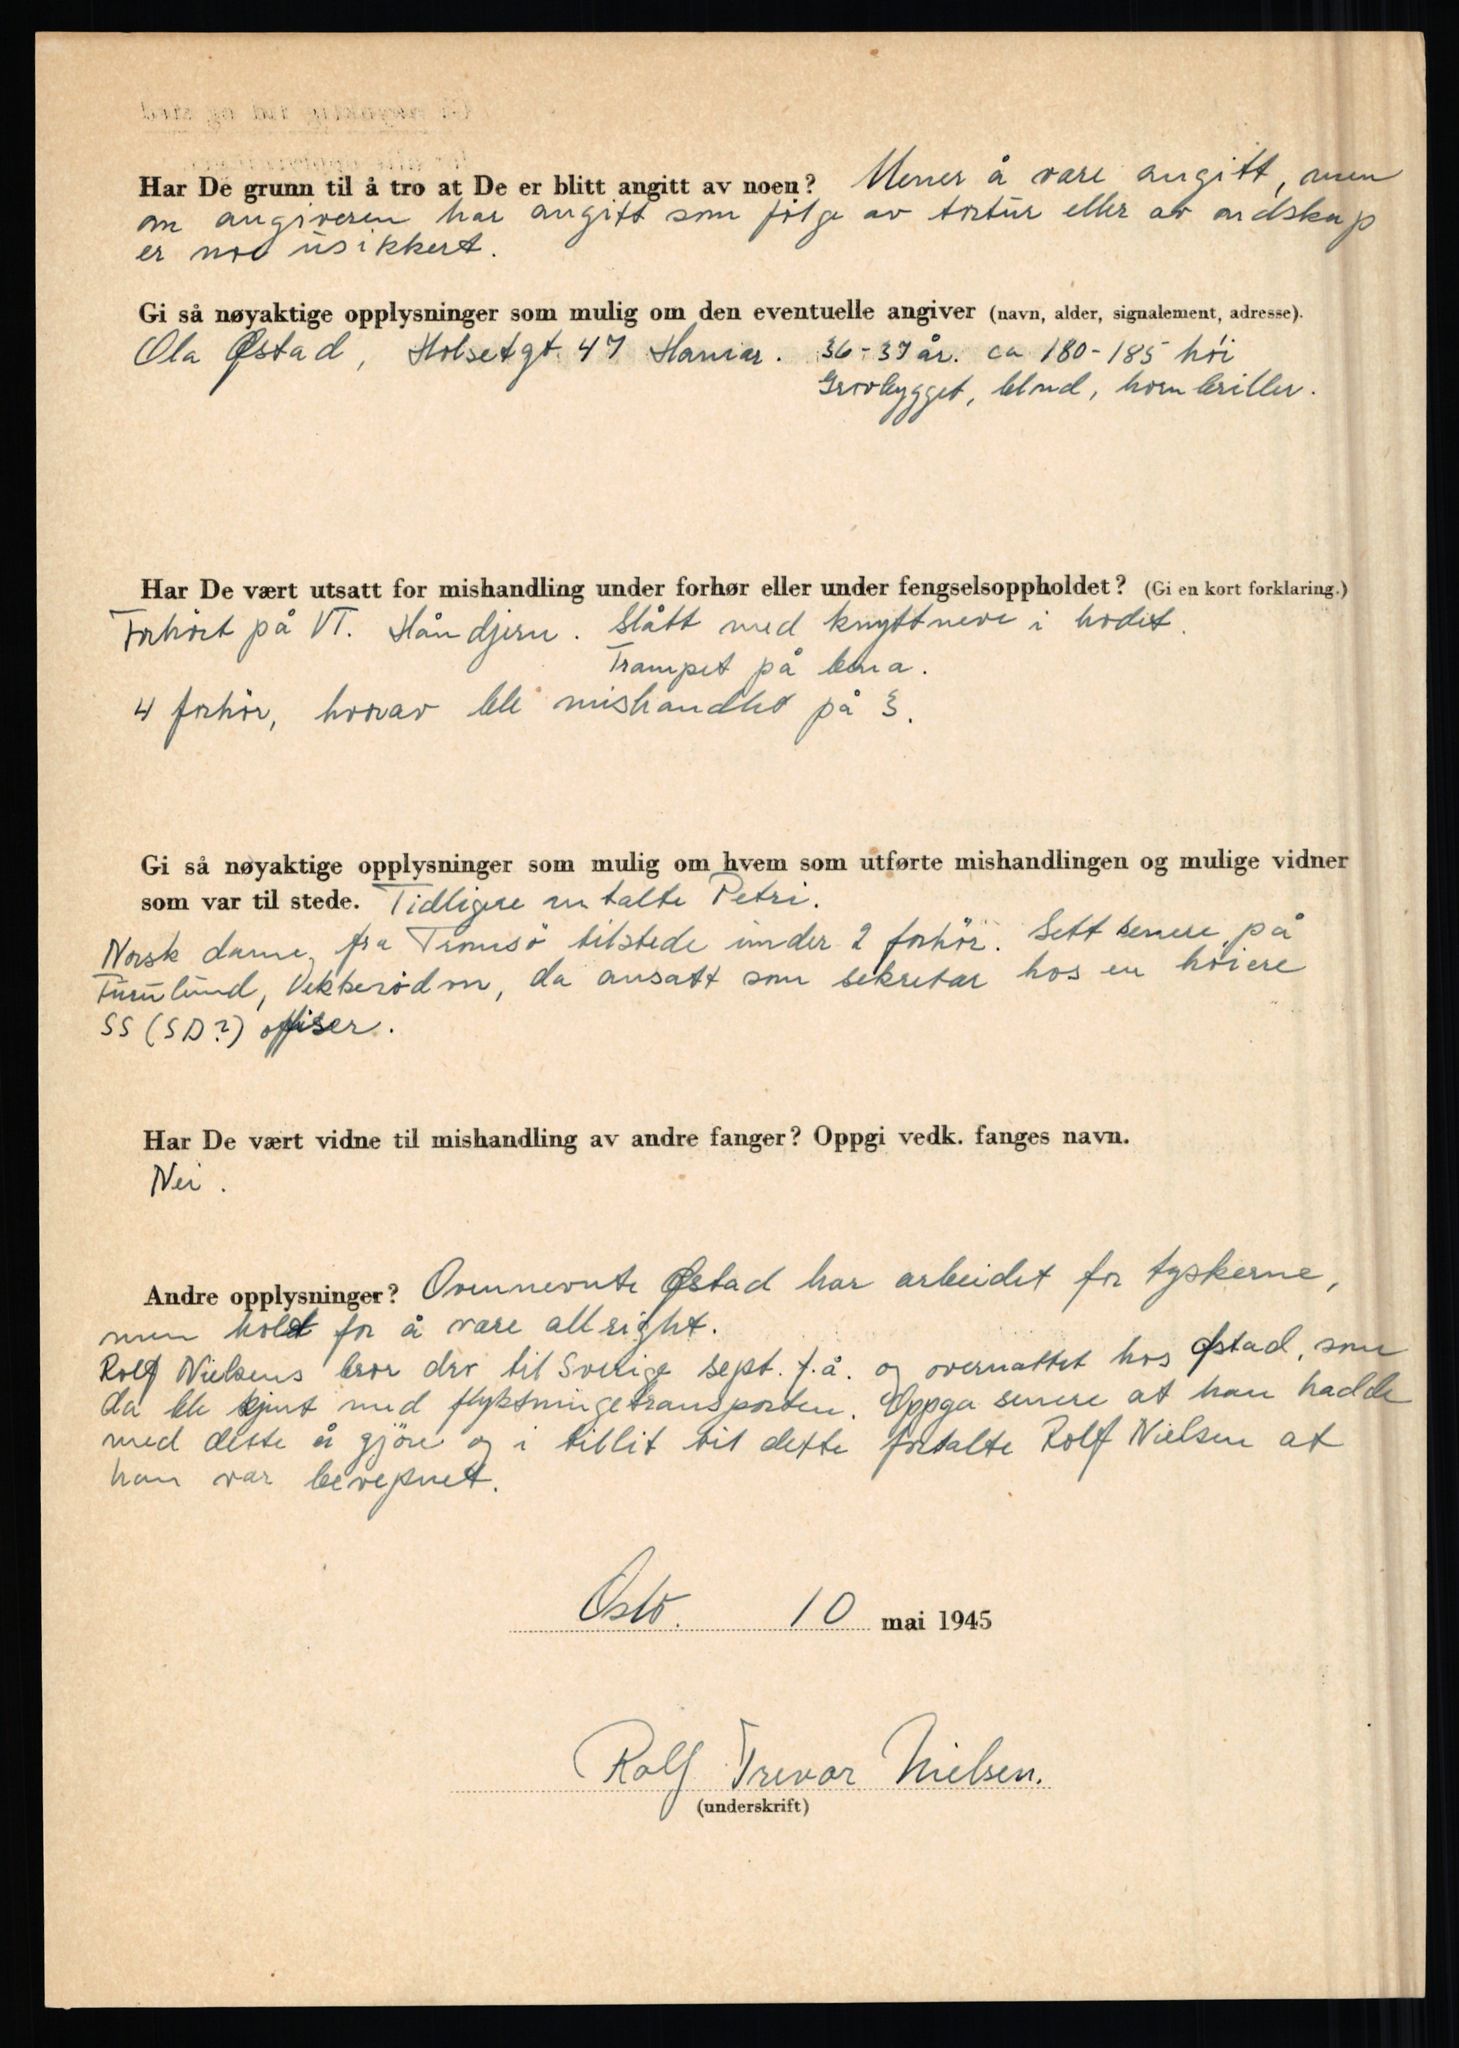 Har De grunn til å tro at De er blitt angitt av noen? Mener å være angitt, men
om angiveren har angitt som følge av tortur eller av ondskap
er noe usikkert.
Gi så nøyaktige opplysninger som mulig om den eventuelle angiver (navn, alder, signalement, adresse).
Ola Østad, Holsetgt. 47 Hamar. 36-37 år. ca 180-185 höi
Grovbygget, blond, hornbriller.
Har De vært utsatt for mishandling under forhør eller under fengselsoppholdet? (Gi en kort forklaring.)
Forhört på VT. Håndjern. Slått med knyttneve i hodet.
Trampet på bena.
4 forhör, hvorav ble mishandlet på 3.
Gi så nøyaktige opplysninger som mulig om hvem som utførte mishandlingen og mulige vidner
som var til stede. Tidligere omtalte Petri.
Norsk dame fra Tromsö tilstede under 2 forhör. Sett senere på
Furulund, Vekkerödvn, da ansatt som sekretær hos en höiere
SS (SD?) offiser.
Har De vært vidne til mishandling av andre fanger? Oppgi vedk. fanges navn.
Nei.
Andre opplysninger? Ovennevnte Østad har arbeidet for tyskerne,
men holdt for å være allright.
Rolf Nielsens bror drv til Sverige sept. f.å. og overnattet hos Østad, som
da ble kjent med flyktningetransporten. Oppga senere at han hadde
med dette å gjöre og i tillit til dette fortalte Rolf Nielsen at
han var bevepnet.
Oslo. 10 mai 1945
Rolf Trevor Nielsen.
(underskrift)